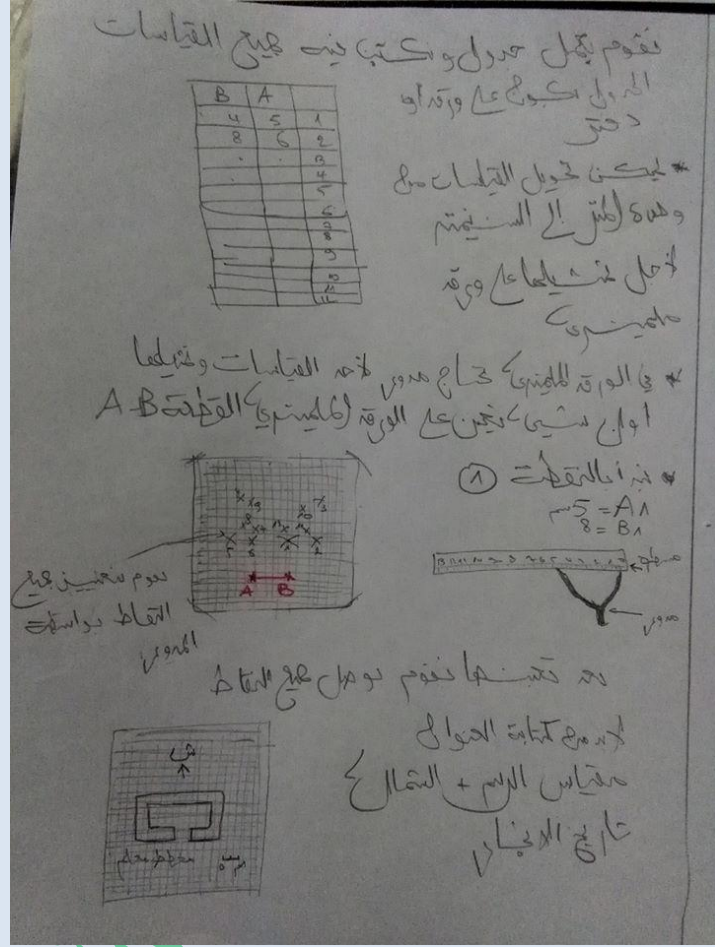 نقوم بعمل جدول ونكتب فيه جميع القياسات
الجدول يكون على ورقة او
دفتر
B A
4 5 1
8 6 2
3
4
5
6
* يمكن تحويل القياسات من
وحدة المتر الى السنتيمتر
لاجل تمثيلها على ورقة
مليمترية
* في الورقة المليمترية نحتاج مدور لاخذ القياسات وتمثيلها
اول شيء نعين على الورقة المليمترية القطعة A-B
* نبدأ بالنقطة 1
A1 = 5 سم
B1 = 8
مسطرة
مدور
A B
نقوم بتعيين جميع
النقاط بواسطة
المدور
بعد تعيينها نقوم بوصل جميع النقاط
لا ننسى كتابة العنوان
مقياس الرسم + الشمال
تاريخ الانجاز
ش